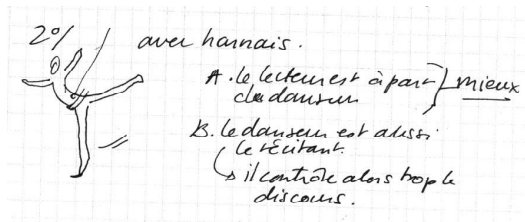 2°/ avec harnais.
A. le lecteur est à part mieux
du danseur
B. le danseur est aussi
le récitant.
il contrôle alors trop le
discours.